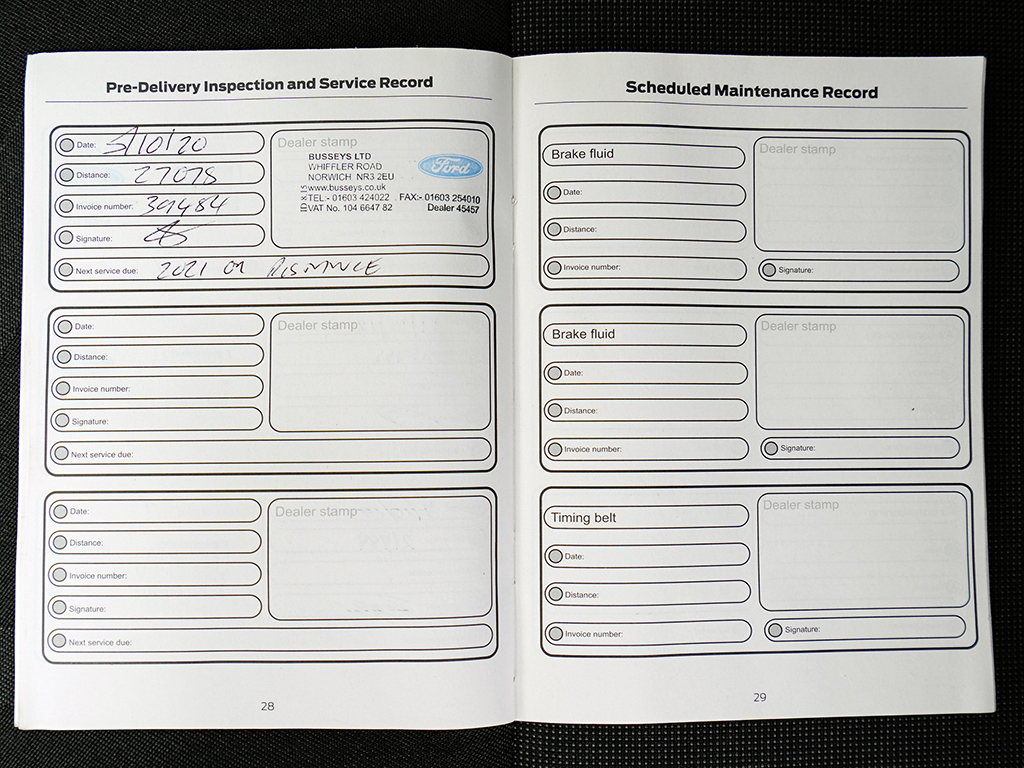 Pre-Delivery Inspection and Service Record
Date: 5/10/20
Distance: 27078
Invoice number: 39484
Signature:
Next service due: 2021 OR DISTANCE
Dealer stamp
BUSSEYS LTD
WHIFFLER ROAD
NORWICH NR3 2EU
www.busseys.co.uk
TEL:- 01603 424022 FAX:- 01603 254010
VAT No. 104 6647 82 Dealer 45457
Ford
Date:
Distance:
Invoice number:
Signature:
Next service due:
Dealer stamp
Date:
Distance:
Invoice number:
Signature:
Next service due:
Dealer stamp
28
Scheduled Maintenance Record
Brake fluid
Date:
Distance:
Invoice number:
Dealer stamp
Signature:
Brake fluid
Date:
Distance:
Invoice number:
Dealer stamp
Signature:
Timing belt
Date:
Distance:
Invoice number:
Dealer stamp
Signature:
29